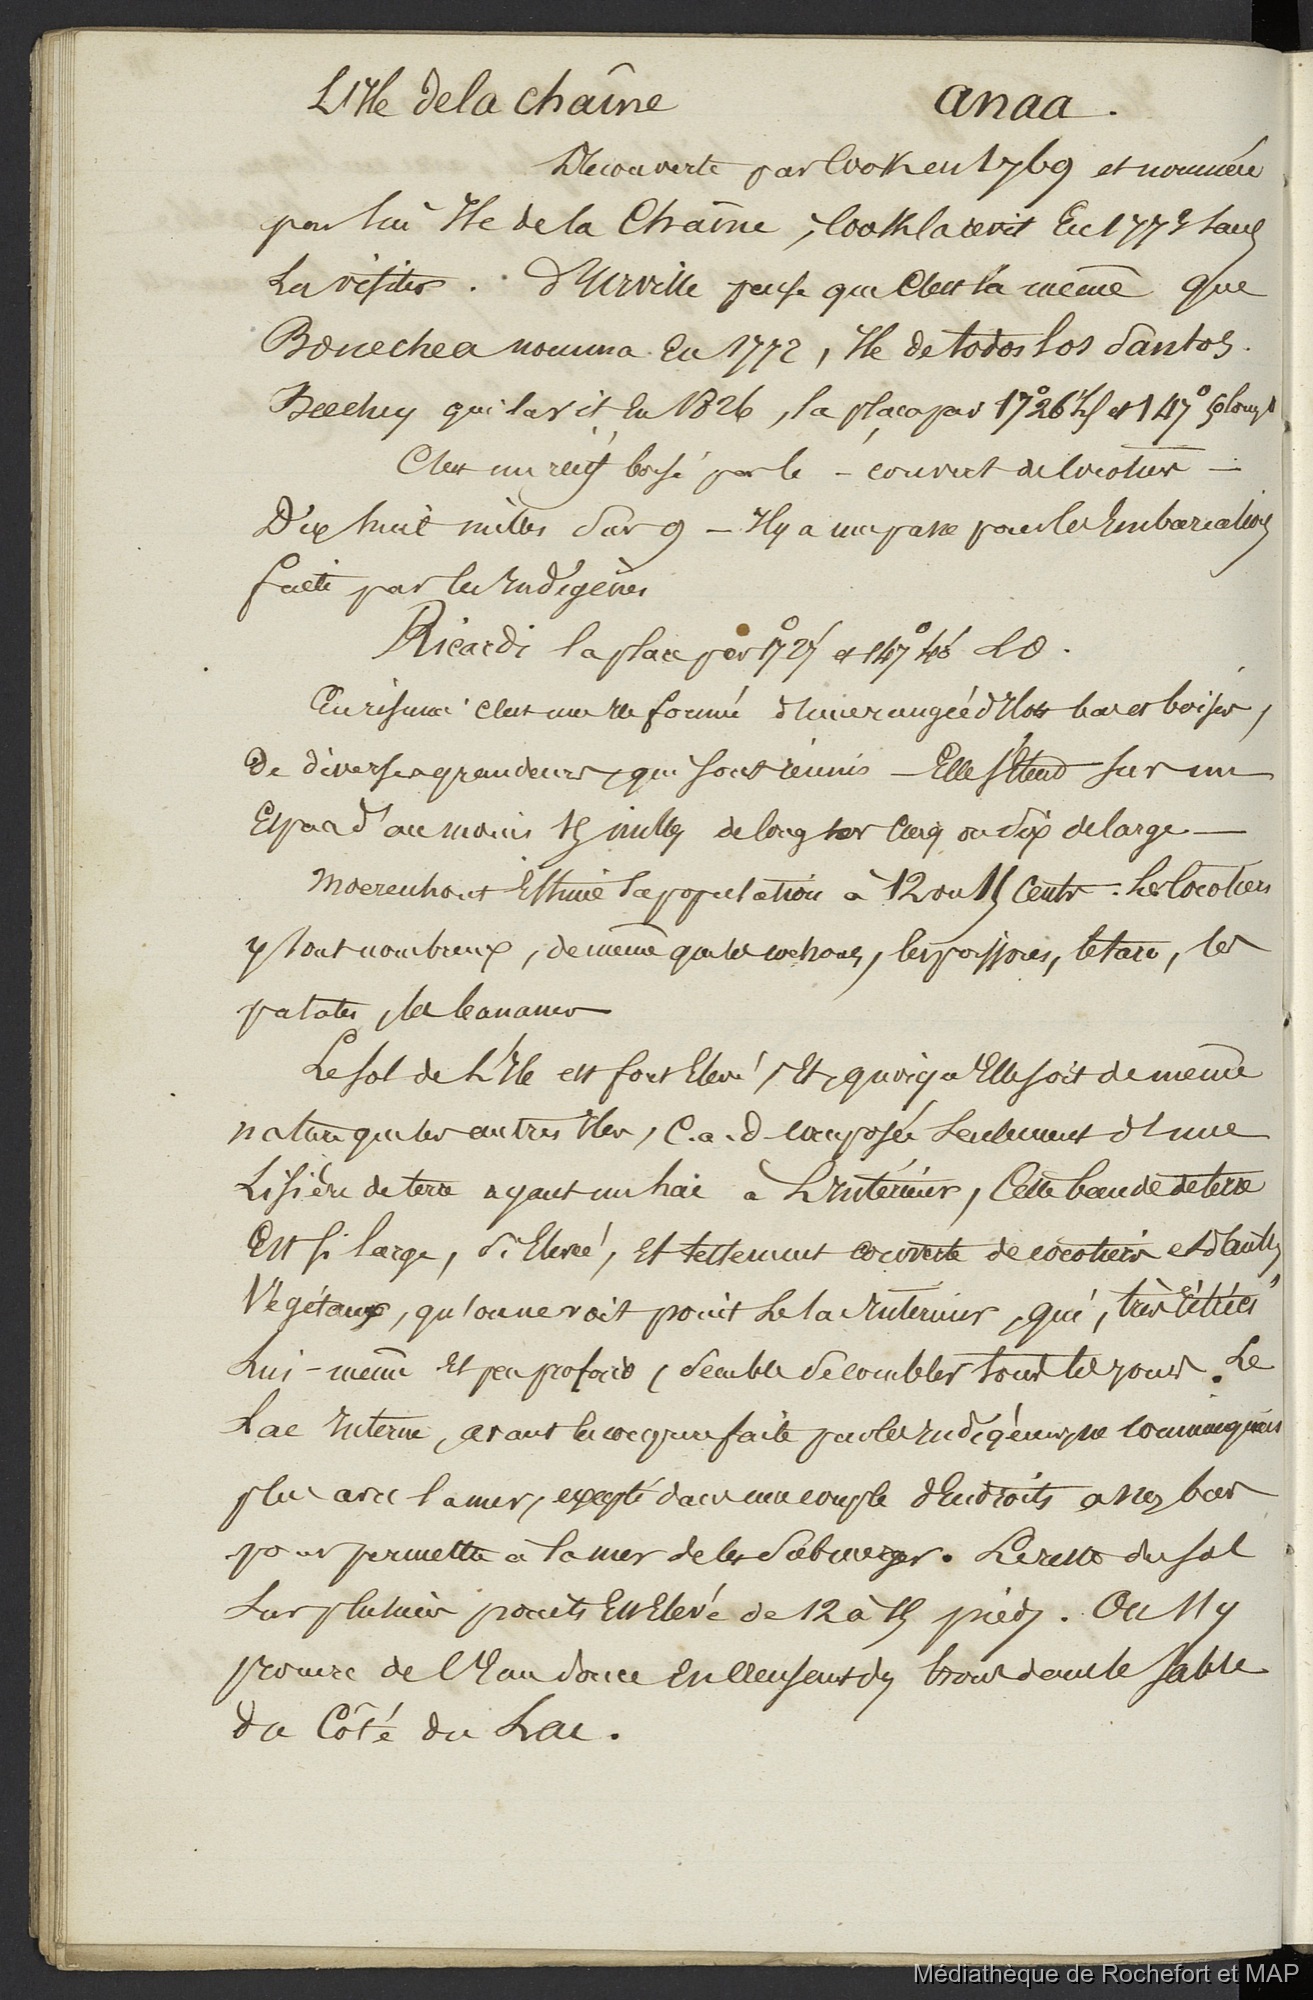 L'Ile de la chaîne anaa.
Découverte par Cook en 1769 et nommée
par lui Ile de la Chaîne, Cook la revit En 1773 sans
La visiter. D'Urville pense que C'est la même que
Bonechea nomma En 1772, Ile de todos los Santos.
Beechey qui la vit En 1826, la plaça par 17° 26' et 147°
C'est un récif boisé par le - couvert de Cocotiers -
Dix huit milles Sur 9 - Il y a une passe pour les Embarcations
faite par les Indigènes
Ricardi la place par 17° 27' et 147° 48' LO.
En résumé c'est une Ile formée d'une rangée d'Ilots bas et boisés,
De diverses grandeurs, qui sont réunis - Elle s'Etend sur un
Espace d'au moins 15 milles de long sur Cinq ou Six de large -
Moerenhout Estime la population à 12 ou 15 Cents. Les Cocotiers
y sont nombreux, de même que les cochons, les poissons, le taro, les
patates, les bananes
Le sol de L'Ile est fort Elevé, Et, quoiqu'Elle soit de même
nature que les autres Iles, C.a.d. composée seulement d'une
Lisière de terre ayant un lac à L'Intérieur, Cette bande de terre
Est si large, si Elevée, Et tellement couverte de cocotiers et d'autres
Végétaux, qu'on ne voit point le lac Intérieur, qui, très rétréci
Lui-même Et peu profond, semble se combler tous les jours. Le
Lac Interne, avant la coupure faite par les Indigènes, ne communiquait
plus avec la mer, excepté dans une couple d'Endroits assez bas
pour permettre à la mer de les submerger. Le reste du sol
Sur plusieurs points Est Elevé de 12 à 15 pieds. On s'y
procure de l'Eau douce En creusant des trous dans le sable
Du Côté du Lac.
Médiathèque de Rochefort et MAP